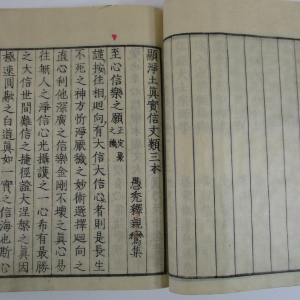 顯淨土眞實信文類三本
愚禿釋親鸞集
至心信樂之願 正定聚之機
謹按往相廻向有大信大信心者則是長生
不死之神方忻淨厭穢之妙術選擇廻向之
直心利他深廣之信樂金剛不壞之眞心易
往無人之淨信心光攝護之一心希有最勝
之大信世間難信之捷徑證大涅槃之眞因
極速圓融之白道眞如一實之信海也斯心